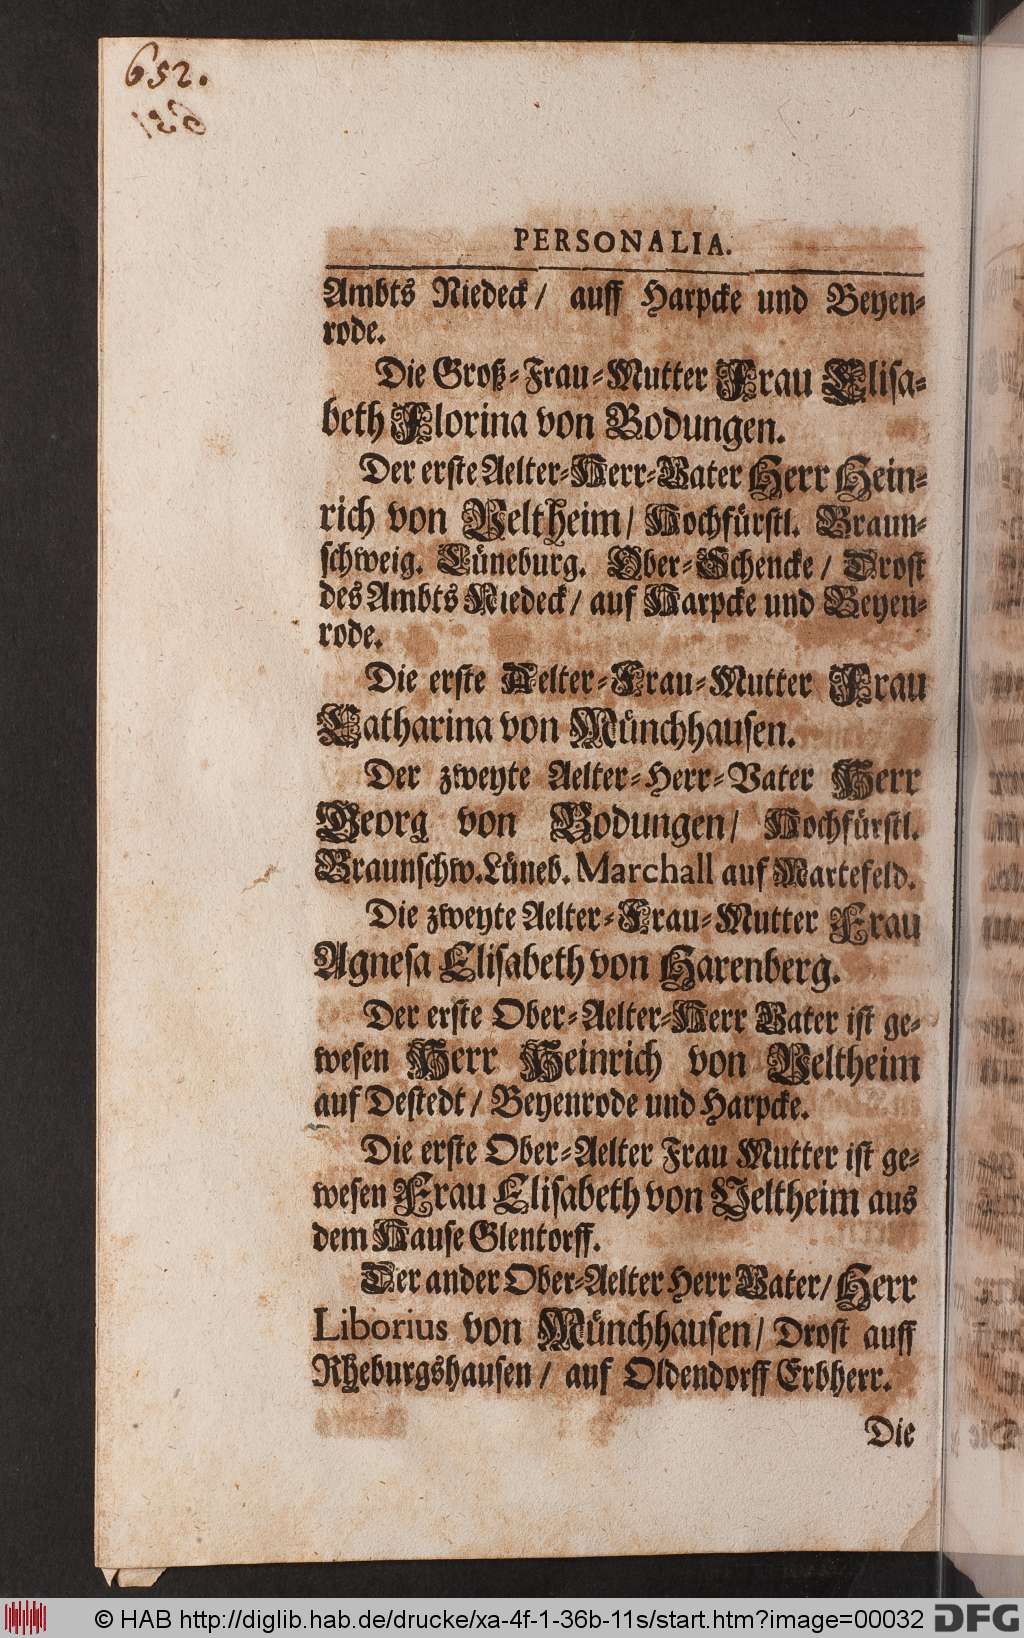 652.
PERSONALIA.
Ambts Niedeck / auff Harpcke und Beyen-
rode.
Die Groß-Frau-Mutter Frau Elisa-
beth Florina von Bodungen.
Der erste Aelter-Herr-Vater Herr Hein-
rich von Veltheim / Hochfürstl. Braun-
schweig. Lüneburg. Ober-Schencke / Drost
des Ambts Niedeck / auf Harpcke und Beyen-
rode.
Die erste Aelter-Frau-Mutter Frau
Catharina von Münchhausen.
Der zweyte Aelter-Herr-Vater Herr
Georg von Bodungen / Hochfürstl.
Braunschw. Lüneb. Marchall auf Martefeld.
Die zweyte Aelter-Frau-Mutter Frau
Agnesa Elisabeth von Harenberg.
Der erste Ober-Aelter-Herr Vater ist ge-
wesen Herr Heinrich von Veltheim
auf Destedt / Beyenrode und Harpcke.
Die erste Ober-Aelter Frau Mutter ist ge-
wesen Frau Elisabeth von Veltheim aus
dem Hause Glentorff.
Der ander Ober-Aelter Herr Vater / Herr
Liborius von Münchhausen / Drost auff
Rheburgshausen / auf Oldendorff Erbherr.
Die
© HAB http://diglib.hab.de/drucke/xa-4f-1-36b-11s/start.htm?image=00032
DFG